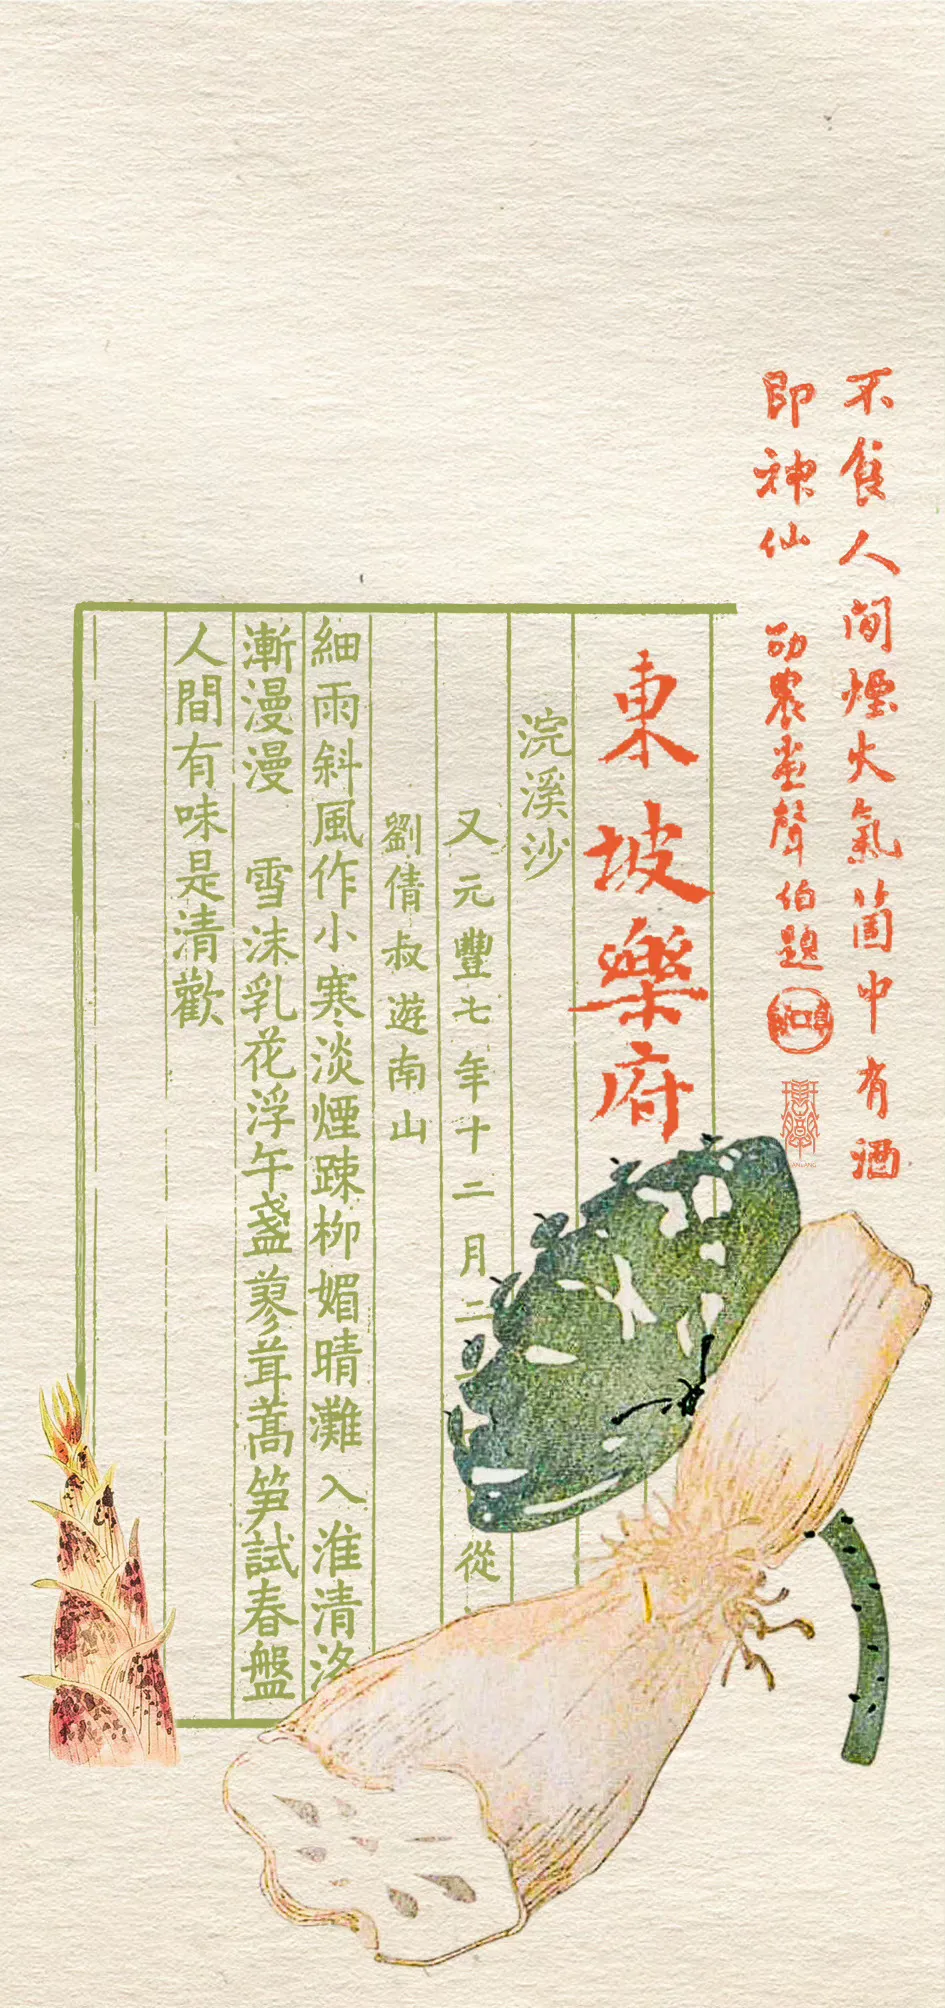 不食人间煙火氣箇中有酒
即神仙
劭農先生聲伯題
東坡樂府
浣溪沙
又元豐七年十二月二
從
劉倩叔遊南山
細雨斜風作小寒淡煙踈柳媚晴灘入淮清洛
漸漫漫 雪沫乳花浮午盞蓼茸蒿笋試春盤
人間有味是清歡